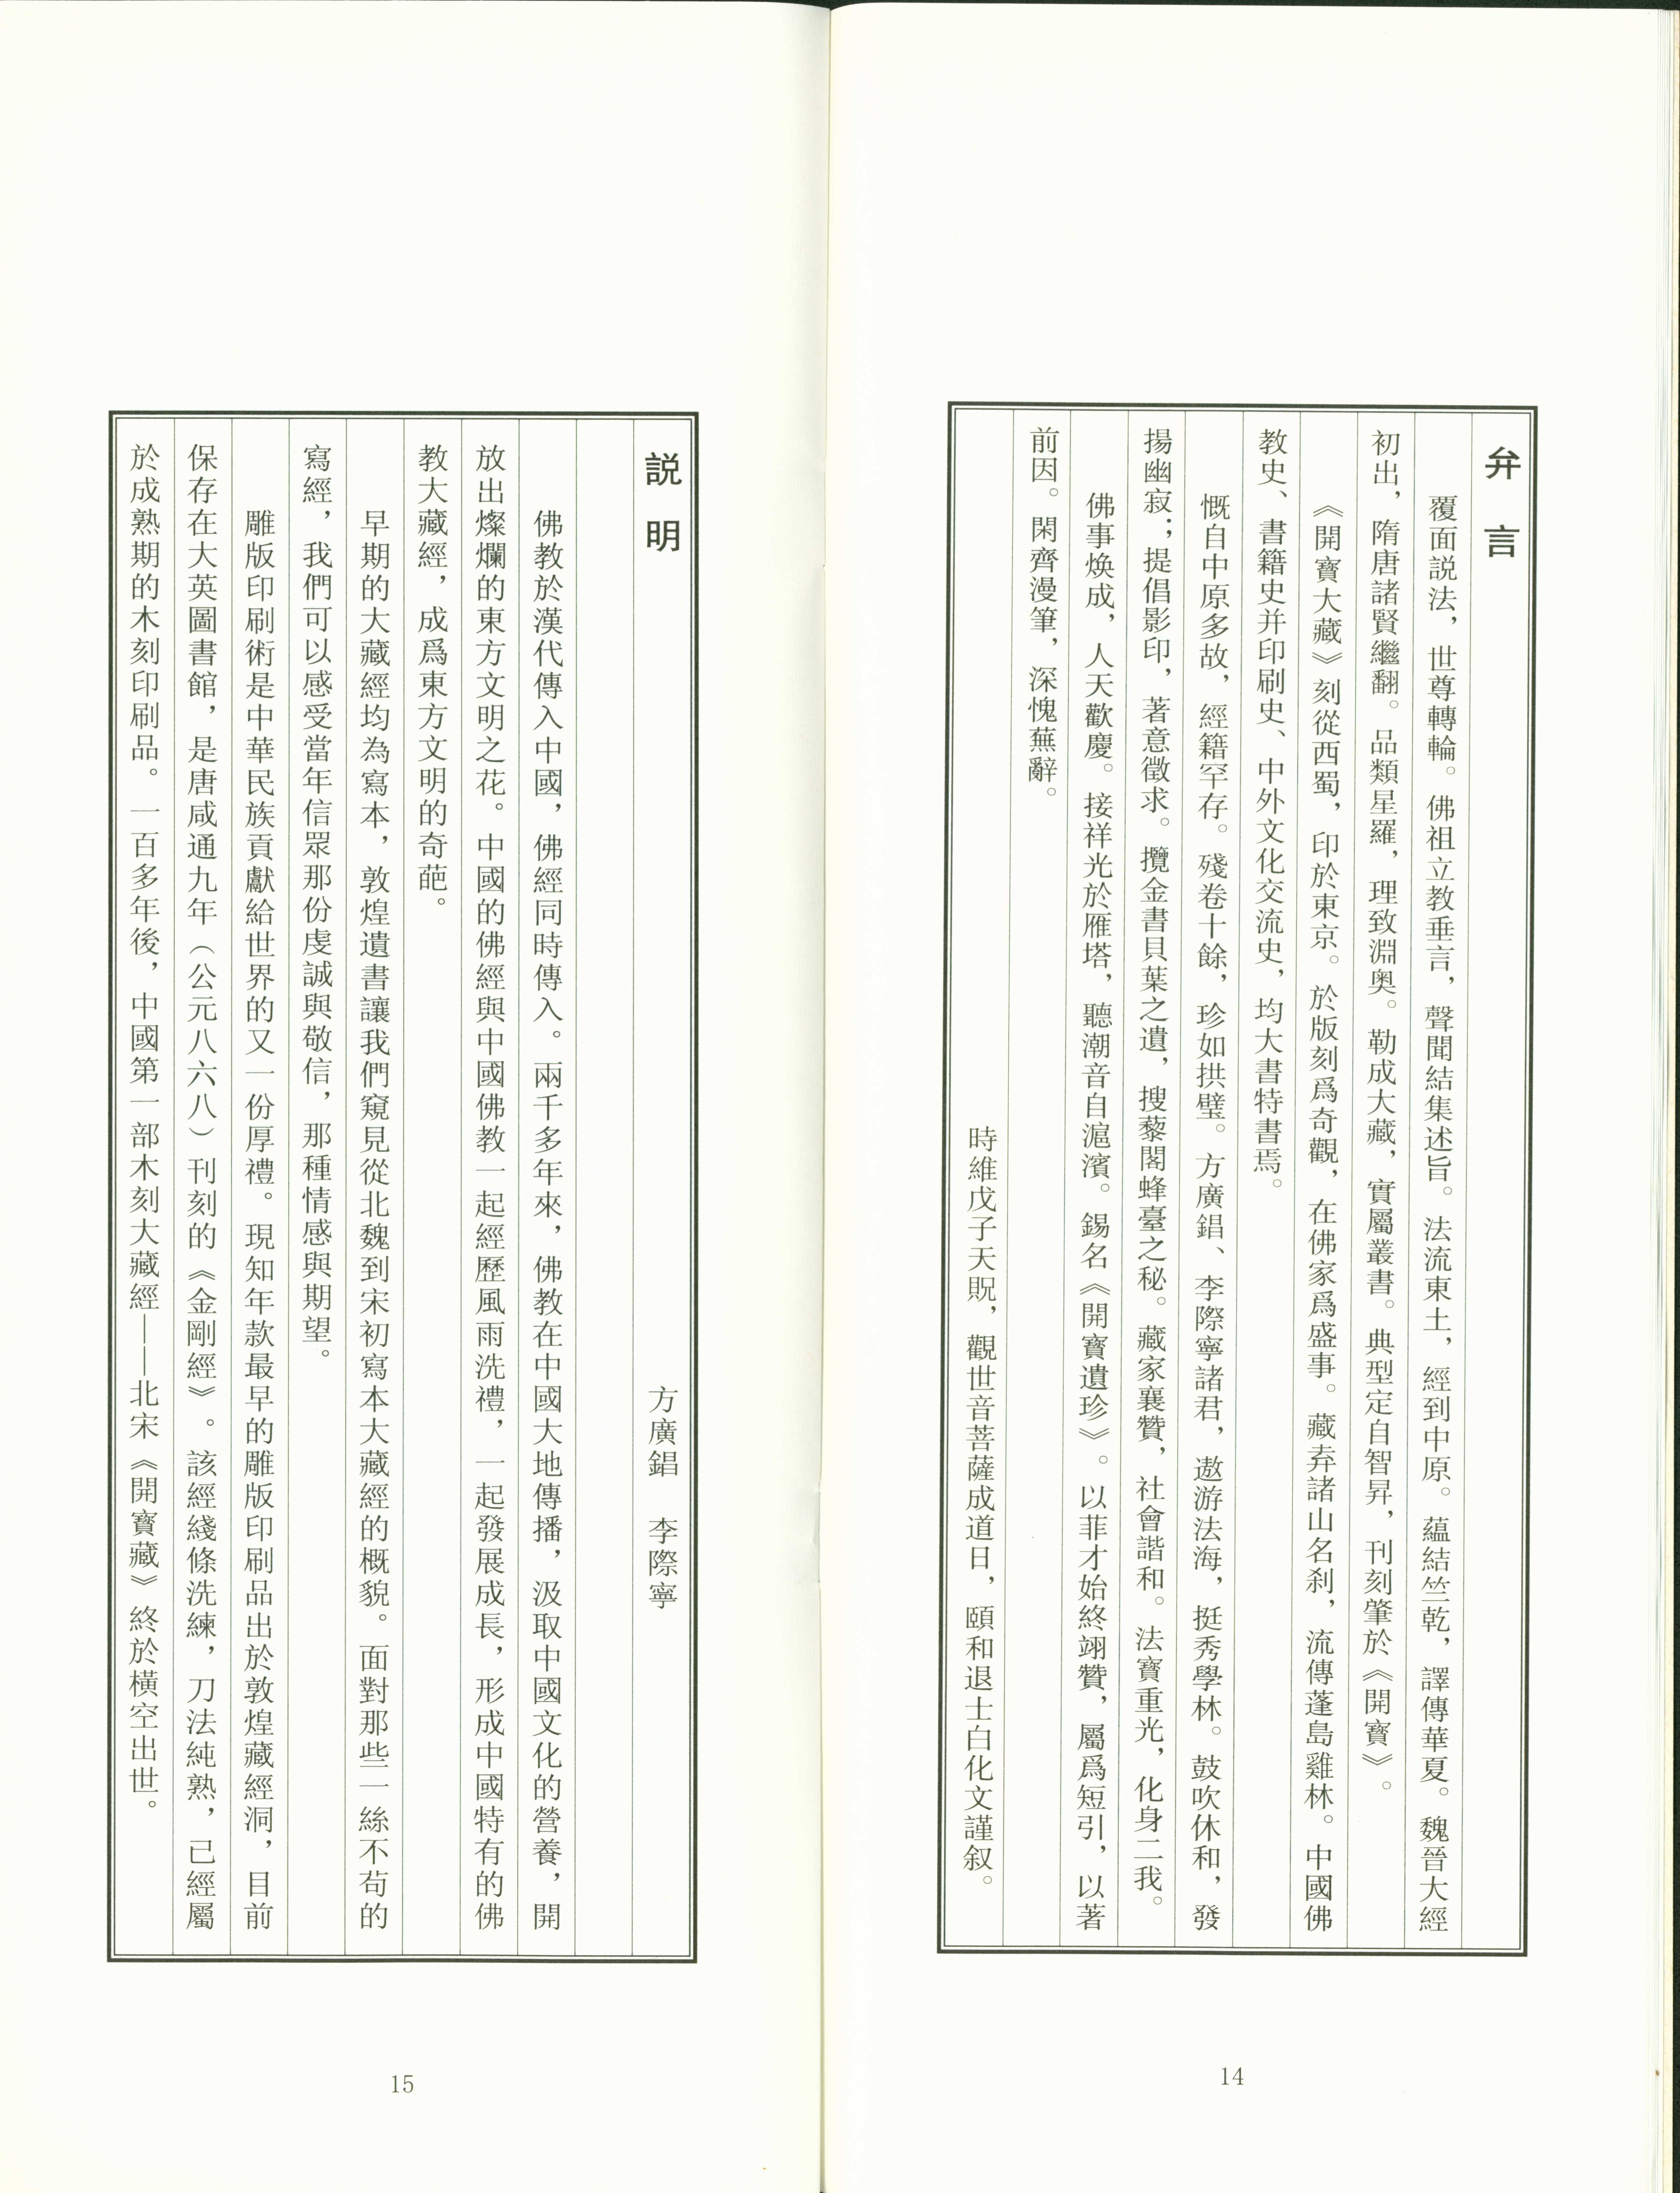 弁言
覆面説法，世尊轉輪。佛祖立教垂言，聲聞結集述旨。法流東土，經到中原。蘊結竺乾，譯傳華夏。魏晉大經
初出，隋唐諸賢繼翻。品類星羅，理致淵奥。勒成大藏，實屬叢書。典型定自智昇，刊刻肇於《開寶》。
《開寶大藏》刻從西蜀，印於東京。於版刻爲奇觀，在佛家爲盛事。藏弆諸山名刹，流傳蓬島雞林。中國佛
教史、書籍史并印刷史、中外文化交流史，均大書特書焉。
慨自中原多故，經籍罕存。殘卷十餘，珍如拱璧。方廣錩、李際寧諸君，遨游法海，挺秀學林。鼓吹休和，發
揚幽寂；提倡影印，著意徵求。攬金書貝葉之遺，搜藜閣蜂臺之秘。藏家襄贊，社會諧和。法寶重光，化身二我。
佛事焕成，人天歡慶。接祥光於雁塔，聽潮音自滬濱。錫名《開寶遺珍》。以菲才始終翊贊，屬爲短引，以著
前因。閑齊漫筆，深愧蕪辭。
時維戊子天貺，觀世音菩薩成道日，頤和退士白化文謹叙。
14
説明
方廣錩　李際寧
佛教於漢代傳入中國，佛經同時傳入。兩千多年來，佛教在中國大地傳播，汲取中國文化的營養，開
放出燦爛的東方文明之花。中國的佛經與中國佛教一起經歷風雨洗禮，一起發展成長，形成中國特有的佛
教大藏經，成爲東方文明的奇葩。
早期的大藏經均為寫本，敦煌遺書讓我們窺見從北魏到宋初寫本大藏經的概貌。面對那些一絲不苟的
寫經，我們可以感受當年信眾那份虔誠與敬信，那種情感與期望。
雕版印刷術是中華民族貢獻給世界的又一份厚禮。現知年款最早的雕版印刷品出於敦煌藏經洞，目前
保存在大英圖書館，是唐咸通九年（公元八六八）刊刻的《金剛經》。該經綫條洗練，刀法純熟，已經屬
於成熟期的木刻印刷品。一百多年後，中國第一部木刻大藏經——北宋《開寶藏》終於橫空出世。
15